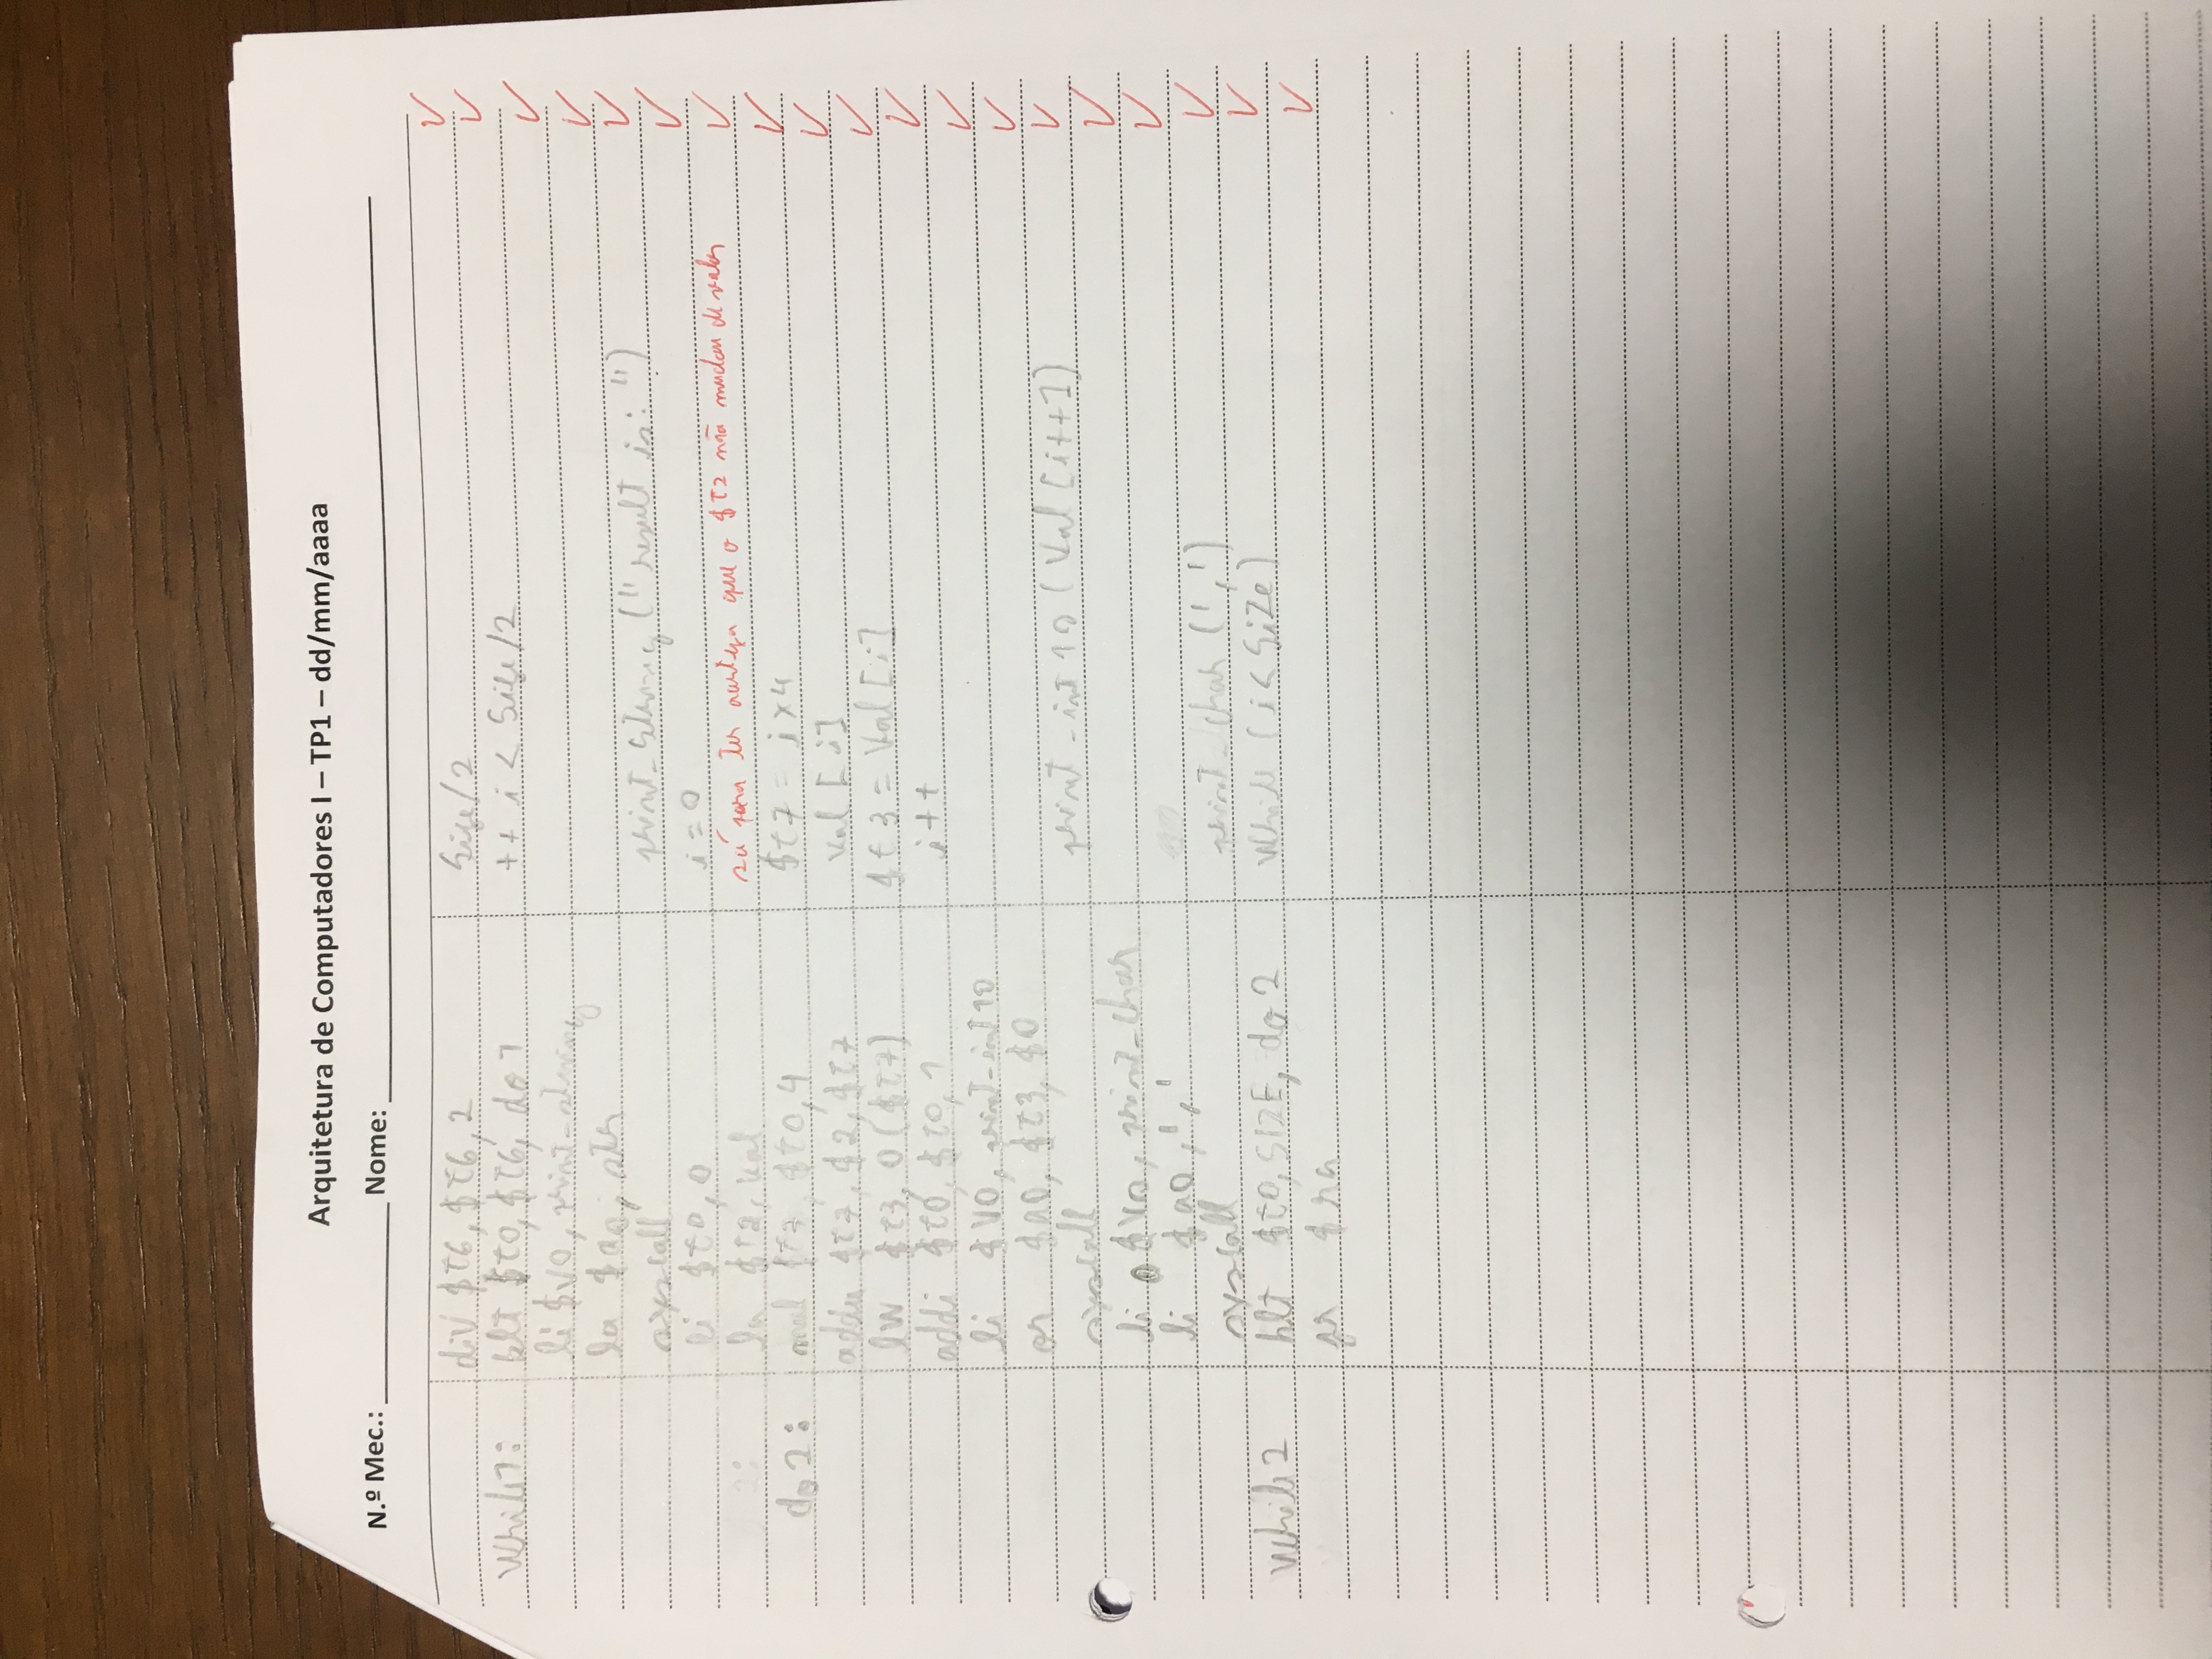 Arquitetura de Computadores I – TP1 – dd/mm/aaaa
N.º Mec.: Nome:
div $t6, $t6, 2 Size/2
while1: blt $t0, $t6, do1 ++ i < Size/2
li $v0, print_string
la $a0, str
syscall print_string (" result is: ")
li $t0, 0 i = 0
la $t2, val só para ter certeza que o $t2 não mudou de valor
do2: mul $t7, $t0, 4 $t7 = i x 4
addu $t7, $2, $t7 Val [i]
lw $t3, 0($t7) $t3 = Val [i]
addi $t0, $t0, 1 i++
li $v0, print_int10
or $a0, $t3, $0
syscall print_int10 (Val [i++])
li $v0, print_char
li $a0, ','
syscall print_char (',')
while2 blt $t0, SIZE, do2 while (i < SiZe)
jr $ra